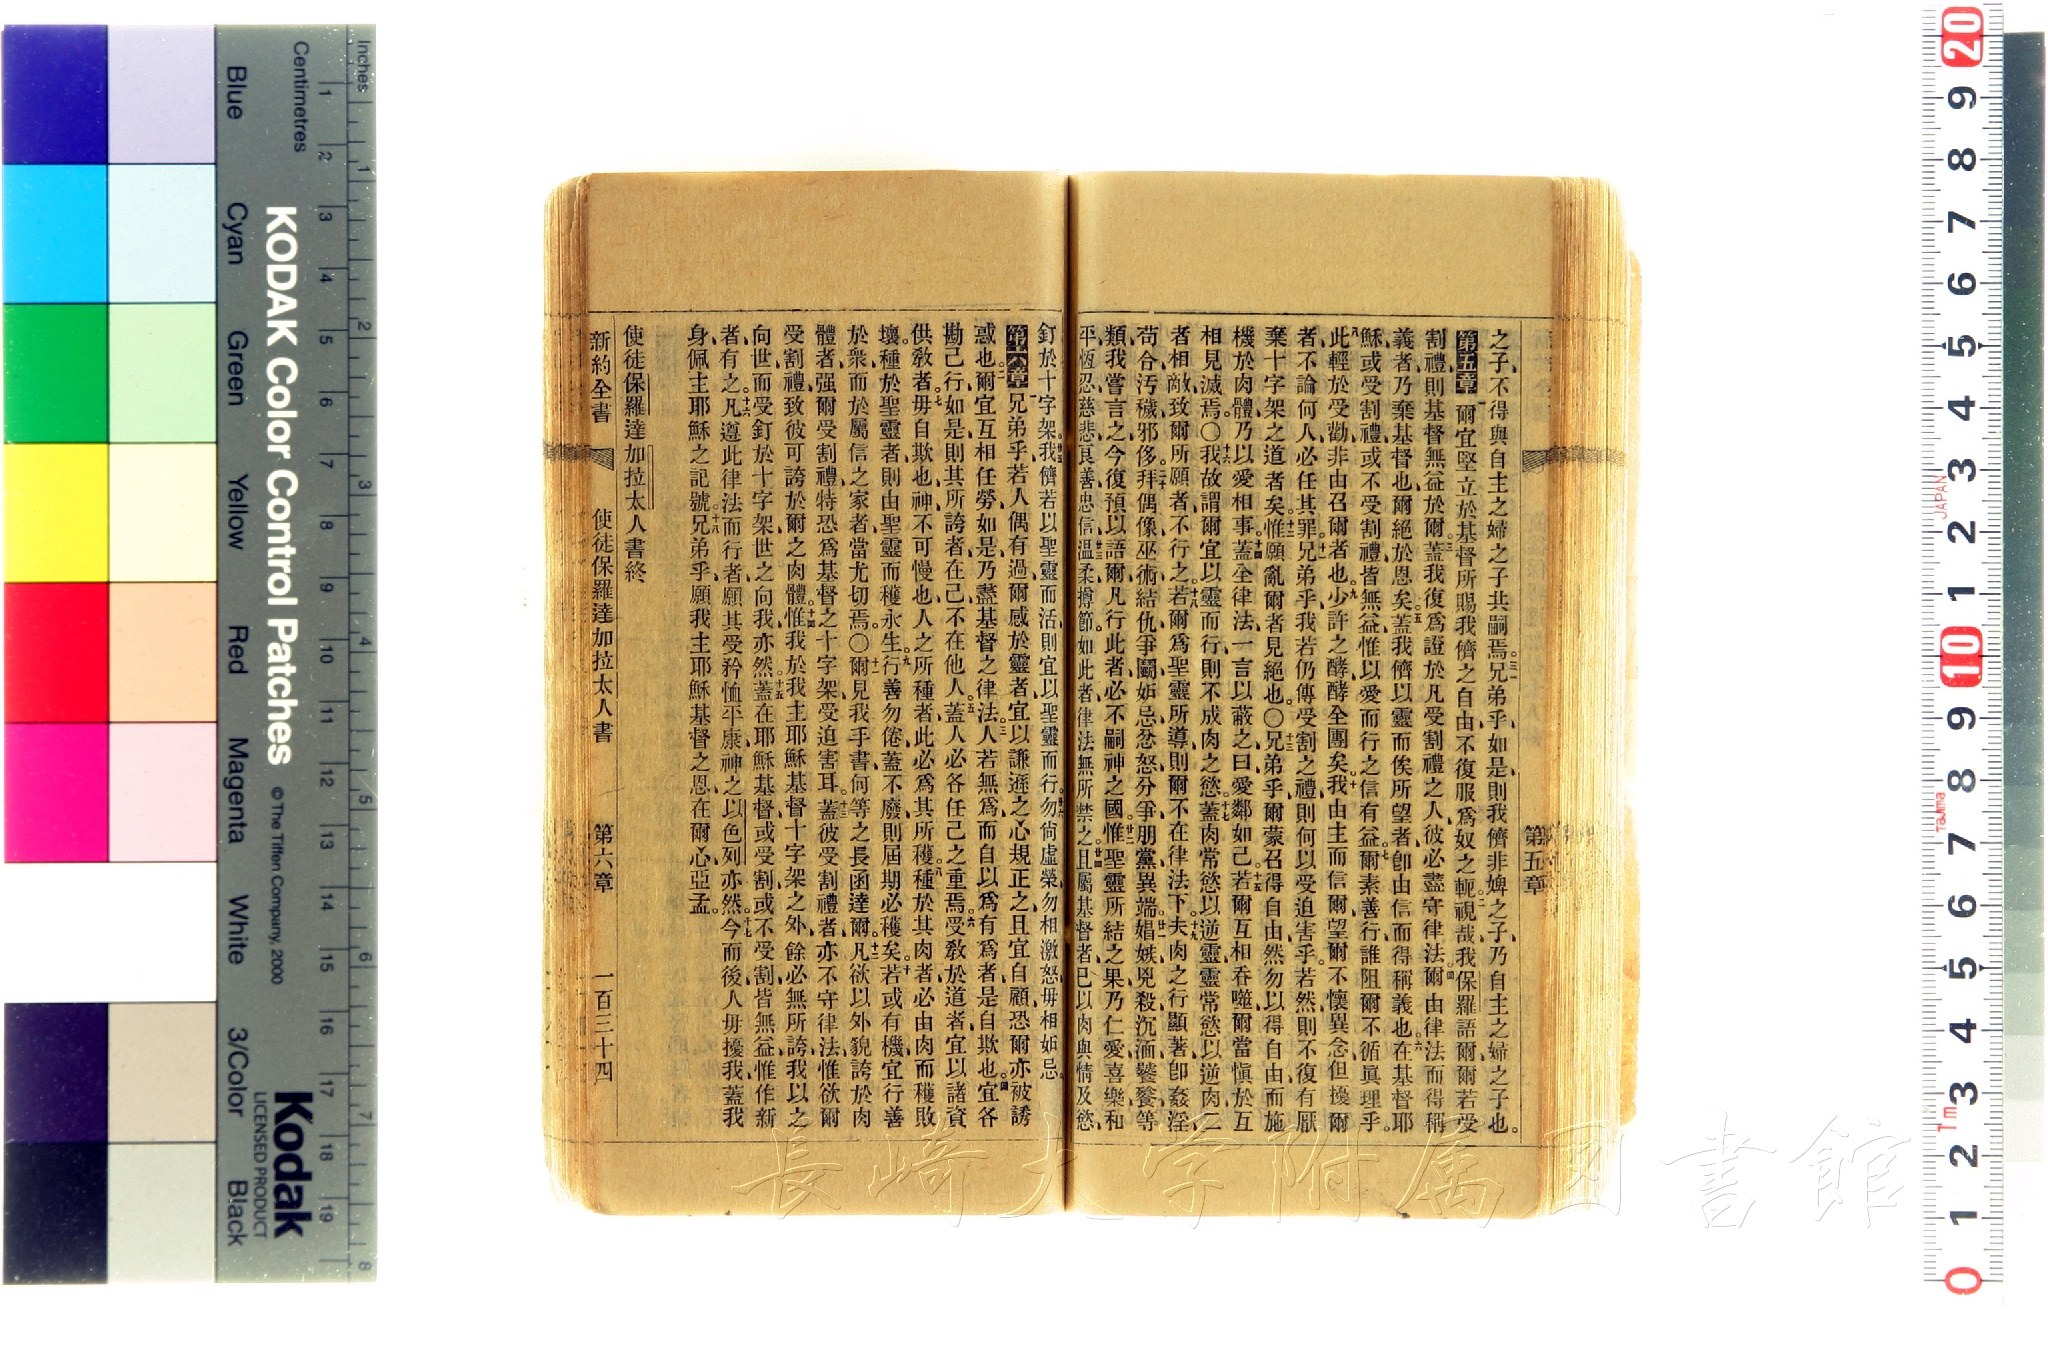 之子不得與自主之婦之子共嗣焉。三一兄弟乎、如是則我儕非婢之子、乃自主之婦之子也。
第五章 一爾宜堅立於基督所賜我儕之自由、不復服爲奴之軛。二視哉、我保羅語爾、爾若受
割禮、則基督無益於爾。三蓋我復爲證於凡受割禮之人、彼必盡守律法。四爾由律法而得稱
義者、乃棄基督也、爾絕於恩矣。五蓋我儕以靈而俟所望者、卽由信而得稱義也。六在基督耶
穌、或受割禮、或不受割禮、皆無益、惟以愛而行之信有益。七爾素善行、誰阻爾不循眞理乎。
八此輕於受勸、非由召爾者也。九少許之酵、酵全團矣。十我由主而信爾、望爾不懷異念、但擾爾
者、不論何人、必任其罪。十一兄弟乎、我若仍傳受割之禮、則何以受迫害乎、若然、則不復有厭
棄十字架之道者矣。十二惟願亂爾者見絕也。〇十三兄弟乎、爾蒙召得自由、然勿以得自由而施
機於肉體、乃以愛相事。十四蓋全律法一言以蔽之、曰、愛鄰如己。十五若爾互相吞噬、爾當愼於互
相見滅焉。〇十六我故謂爾宜以靈而行、則不成肉之慾。十七蓋肉常慾以逆靈、靈常慾以逆肉、二
者相敵、致爾所願者、不行之。十八若爾爲聖靈所導、則爾不在律法下。十九夫肉之行顯著、卽姦淫、
苟合、汚穢、邪侈、二十拜偶像、巫術、結仇、爭鬬、妬忌、忿怒、分爭、朋黨、異端、廿一娼嫉、兇殺、沉湎、饕餮等
類、我嘗言之、今復預以語爾、凡行此者、必不嗣神之國。廿二惟聖靈所結之果、乃仁愛、喜樂、和
平、恆忍、慈悲、良善、忠信、廿三温柔、撙節、如此者、律法無所禁之。廿四且屬基督者、已以肉與情及慾、
第五章
釘於十字架。廿五我儕若以聖靈而活、則宜以聖靈而行。廿六勿尙虛榮、勿相激怒、毋相妬忌
第六章 一兄弟乎、若人偶有過、爾感於靈者、宜以謙遜之心規正之、且宜自顧、恐爾亦被誘
惑也。二爾宜互相任勞、如是、乃盡基督之律法。三人若無爲而自以爲有爲者、是自欺也。四宜各
勘己行、如是、則其所誇者、在己不在他人。五蓋人必各任己之重焉。六受敎於道者、宜以諸資
供敎者。七毋自欺也、神不可慢也、人之所種者、此必爲其所穫。八種於其肉者、必由肉而穫敗
壞、種於聖靈者、則由聖靈而穫永生。九行善勿倦、蓋不廢則屆期必穫矣。十若或有機、宜行善
於衆、而於屬信之家者、當尤切焉。〇十一爾見我手書何等之長函達爾。十二凡欲以外貌誇於肉
體者、强爾受割禮、特恐爲基督之十字架受迫害耳。十三蓋彼受割禮者、亦不守律法、惟欲爾
受割禮、致彼可誇於爾之肉體。十四惟我於我主耶穌基督十字架之外、餘必無所誇、我以之
向世、而受釘於十字架、世之向我亦然。十五蓋在耶穌基督、或受割、或不受割、皆無益、惟作新
者有之。十六凡遵此律法而行者、願其受矜恤平康、神之以色列亦然。十七今而後、人毋擾我、蓋我
身佩主耶穌之記號。十八兄弟乎、願我主耶穌基督之恩在爾心、亞孟
使徒保羅達加拉太人書終
新約全書 使徒保羅達加拉太人書 第六章 一百三十四
長崎大学附属図書館
KODAK Color Control Patches © The Tiffen Company, 2000
Kodak
LICENSED PRODUCT
Inches
Centimetres
Blue Cyan Green Yellow Red Magenta White 3/Color Black
1 2 3 4 5 6 7 8 9 10 11 12 13 14 15 16 17 18 19
1 2 3 4 5 6 7 8
20 9 8 7 6 5 4 3 2 1 10 9 8 7 6 5 4 3 2 1 0
JAPAN
Tajima
Tm